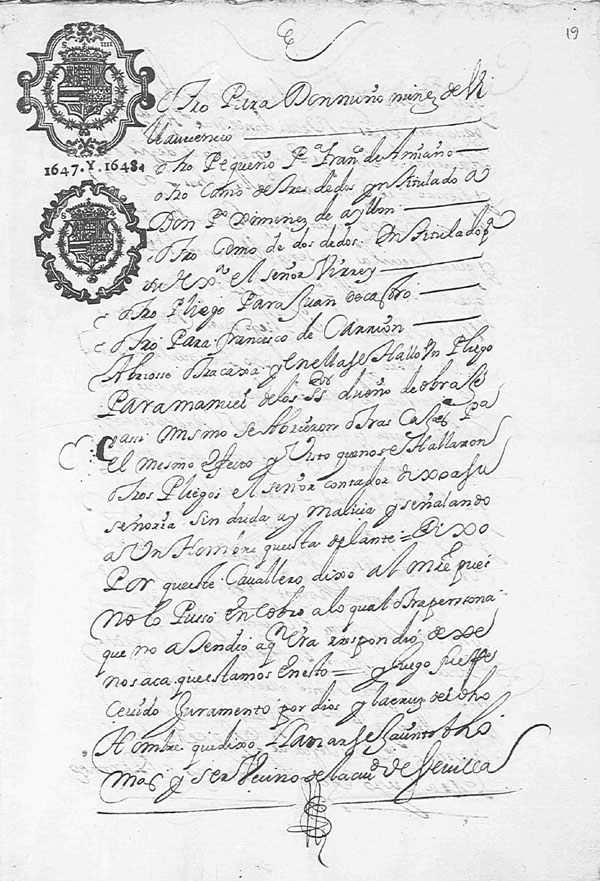 19
S IIII
1647. Y. 1648.
S
Otro Para Don nuño nuñez de Vi
llauicencio
otro Pequeño Pª. franco de
otro Como de tres dedos yntitulado a
Don Pº Ximenez de ayllon
otro Como de dos dedos. yntitulado
de el señor Virrey
otro Pliego Para Juan de castro
otro Para francisco de Carrion
Abriosse otra caxa y en ella se Hallo Vn Pliego
Para manuel de los Ss dueño de obra
y assi mismo se Abrieron otras Caxas Pa
el mesmo efeto y Visto que no se Hallaron
otros Pliegos el señor contador dixo a su
señoria Sin duda ay malicia y señalando
a Un Hombre que esta delante = Dixo
Por que este Cavallero dixo al pues
no lo Pusso En Cobro a lo qual otra persona
que no a tendio aqn Era respondio dexe
nos aca que estamos En esto = y luego fue Re
cevido Juramento por dios y la cruz del dho
Hombre que dixo Llamarse Jacinto tho
mas y ser Vecino de la ciud de Sevilla